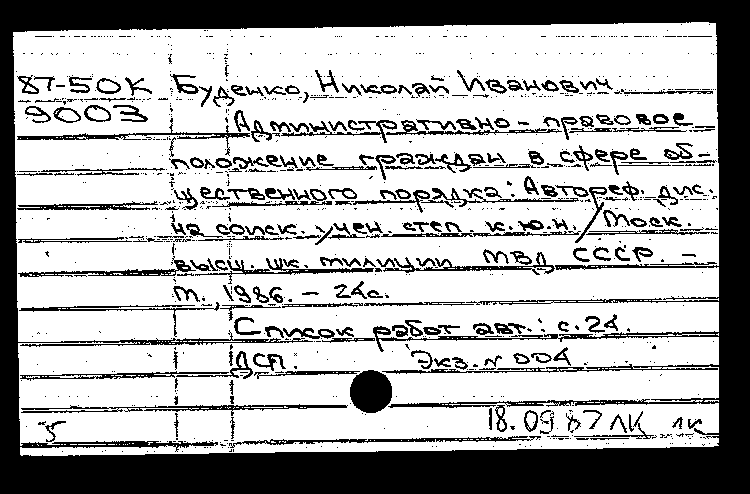 87-50К Буденко, Николай Иванович
9003
Административно-правовое
положение граждан в сфере об-
щественного порядка: Автореф. дис.
на соиск. учен. степ. к.ю.н. / Моск.
высш. шк. милиции МВД СССР. –
М., 1986. – 24с.
Список работ авт.: с.24.
ДСП. Экз. N 004.
18.09.87 ЛК лк